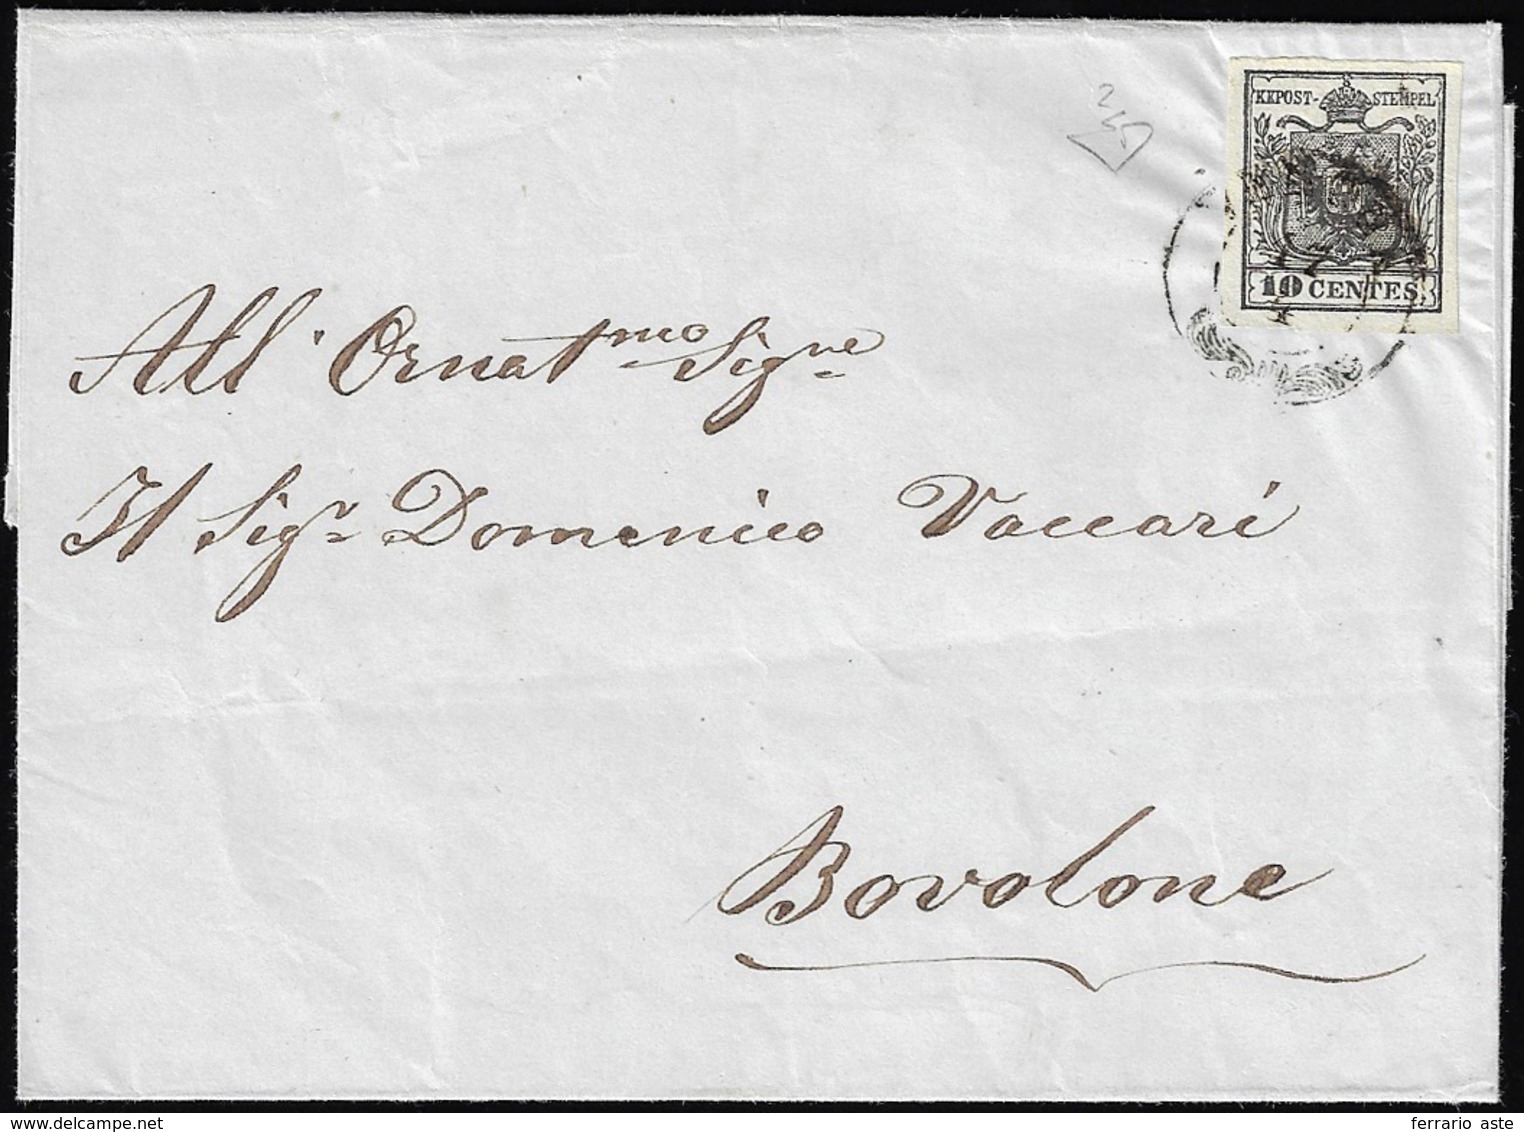 KKPOST-STEMPEL
10 CENTES.
All' Ornat.mo Sig.re
Il Sig.r Domenico Vaccari
Bovolone
ferrario aste